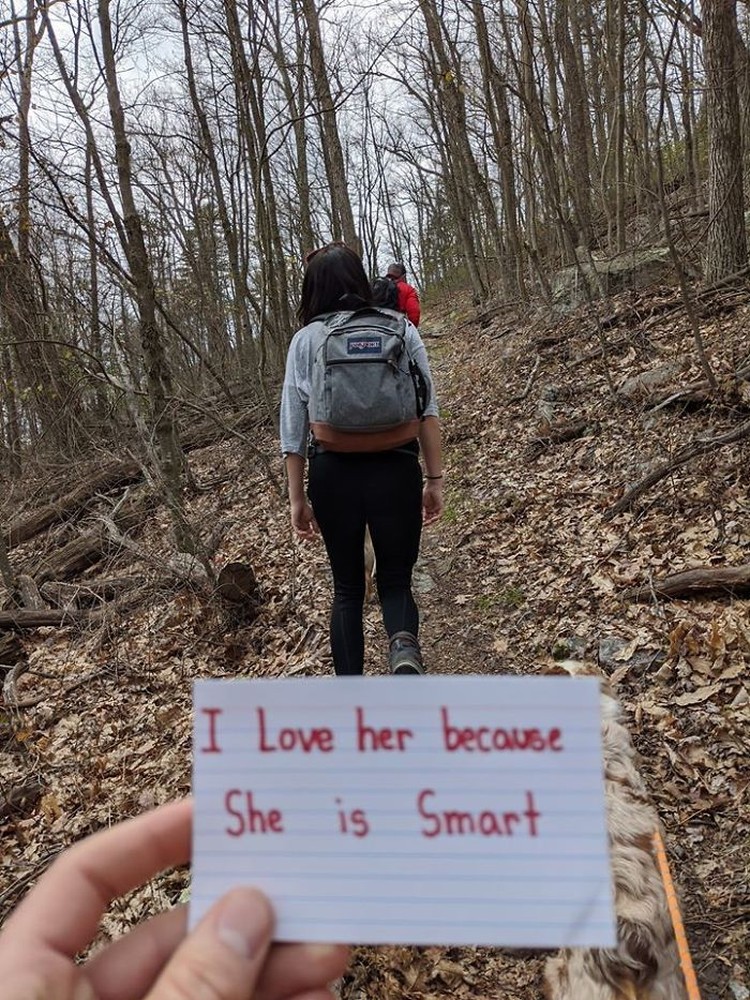 I Love her because
She is Smart
JANSPORT